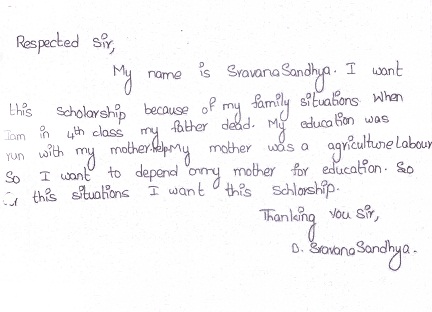 Respected Sir,
My name is SravanaSandhya. I want
this scholarship because of my family situations When
Iam in 4th class my father dead. My education was
run with my mother help My mother was a agriculture Labour
So I want to depend on my mother for education. So
this situations I want this schlorship.
Thanking you Sir,
D. SravanaSandhya.